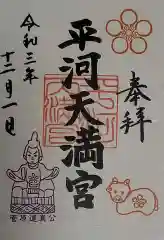 奉拝
平河天満宮
令和三年
十二月一日
菅原道真公